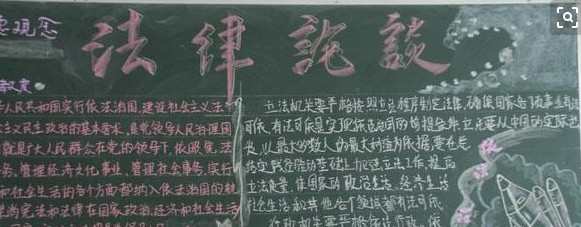 法律讼谈
观念
人民共和国实行依法治国,建设社会主义法
主义民主政治的基本要求,是党领导人民治理国
就是广大人民群众在党的领导下,依照宪法
务,管理经济文化事业,管理社会事务,实行
和社会生活的各个方面都纳入依法治国的轨
宪法和法律在国家政治,经济和社会生活
立法机关要严格按照立法程序制定法律,
可依,有法可依是实现依法治国的前提条件,立法要从中国的实际出
发,以最大多数人的最大利益为依据,要在总
结实践经验的基础上加速立法工作,提高
立法质量,使国家的政治生活、经济生活
社会生活和其他各个领域都有法可依
行政机关要严格依法行政,依